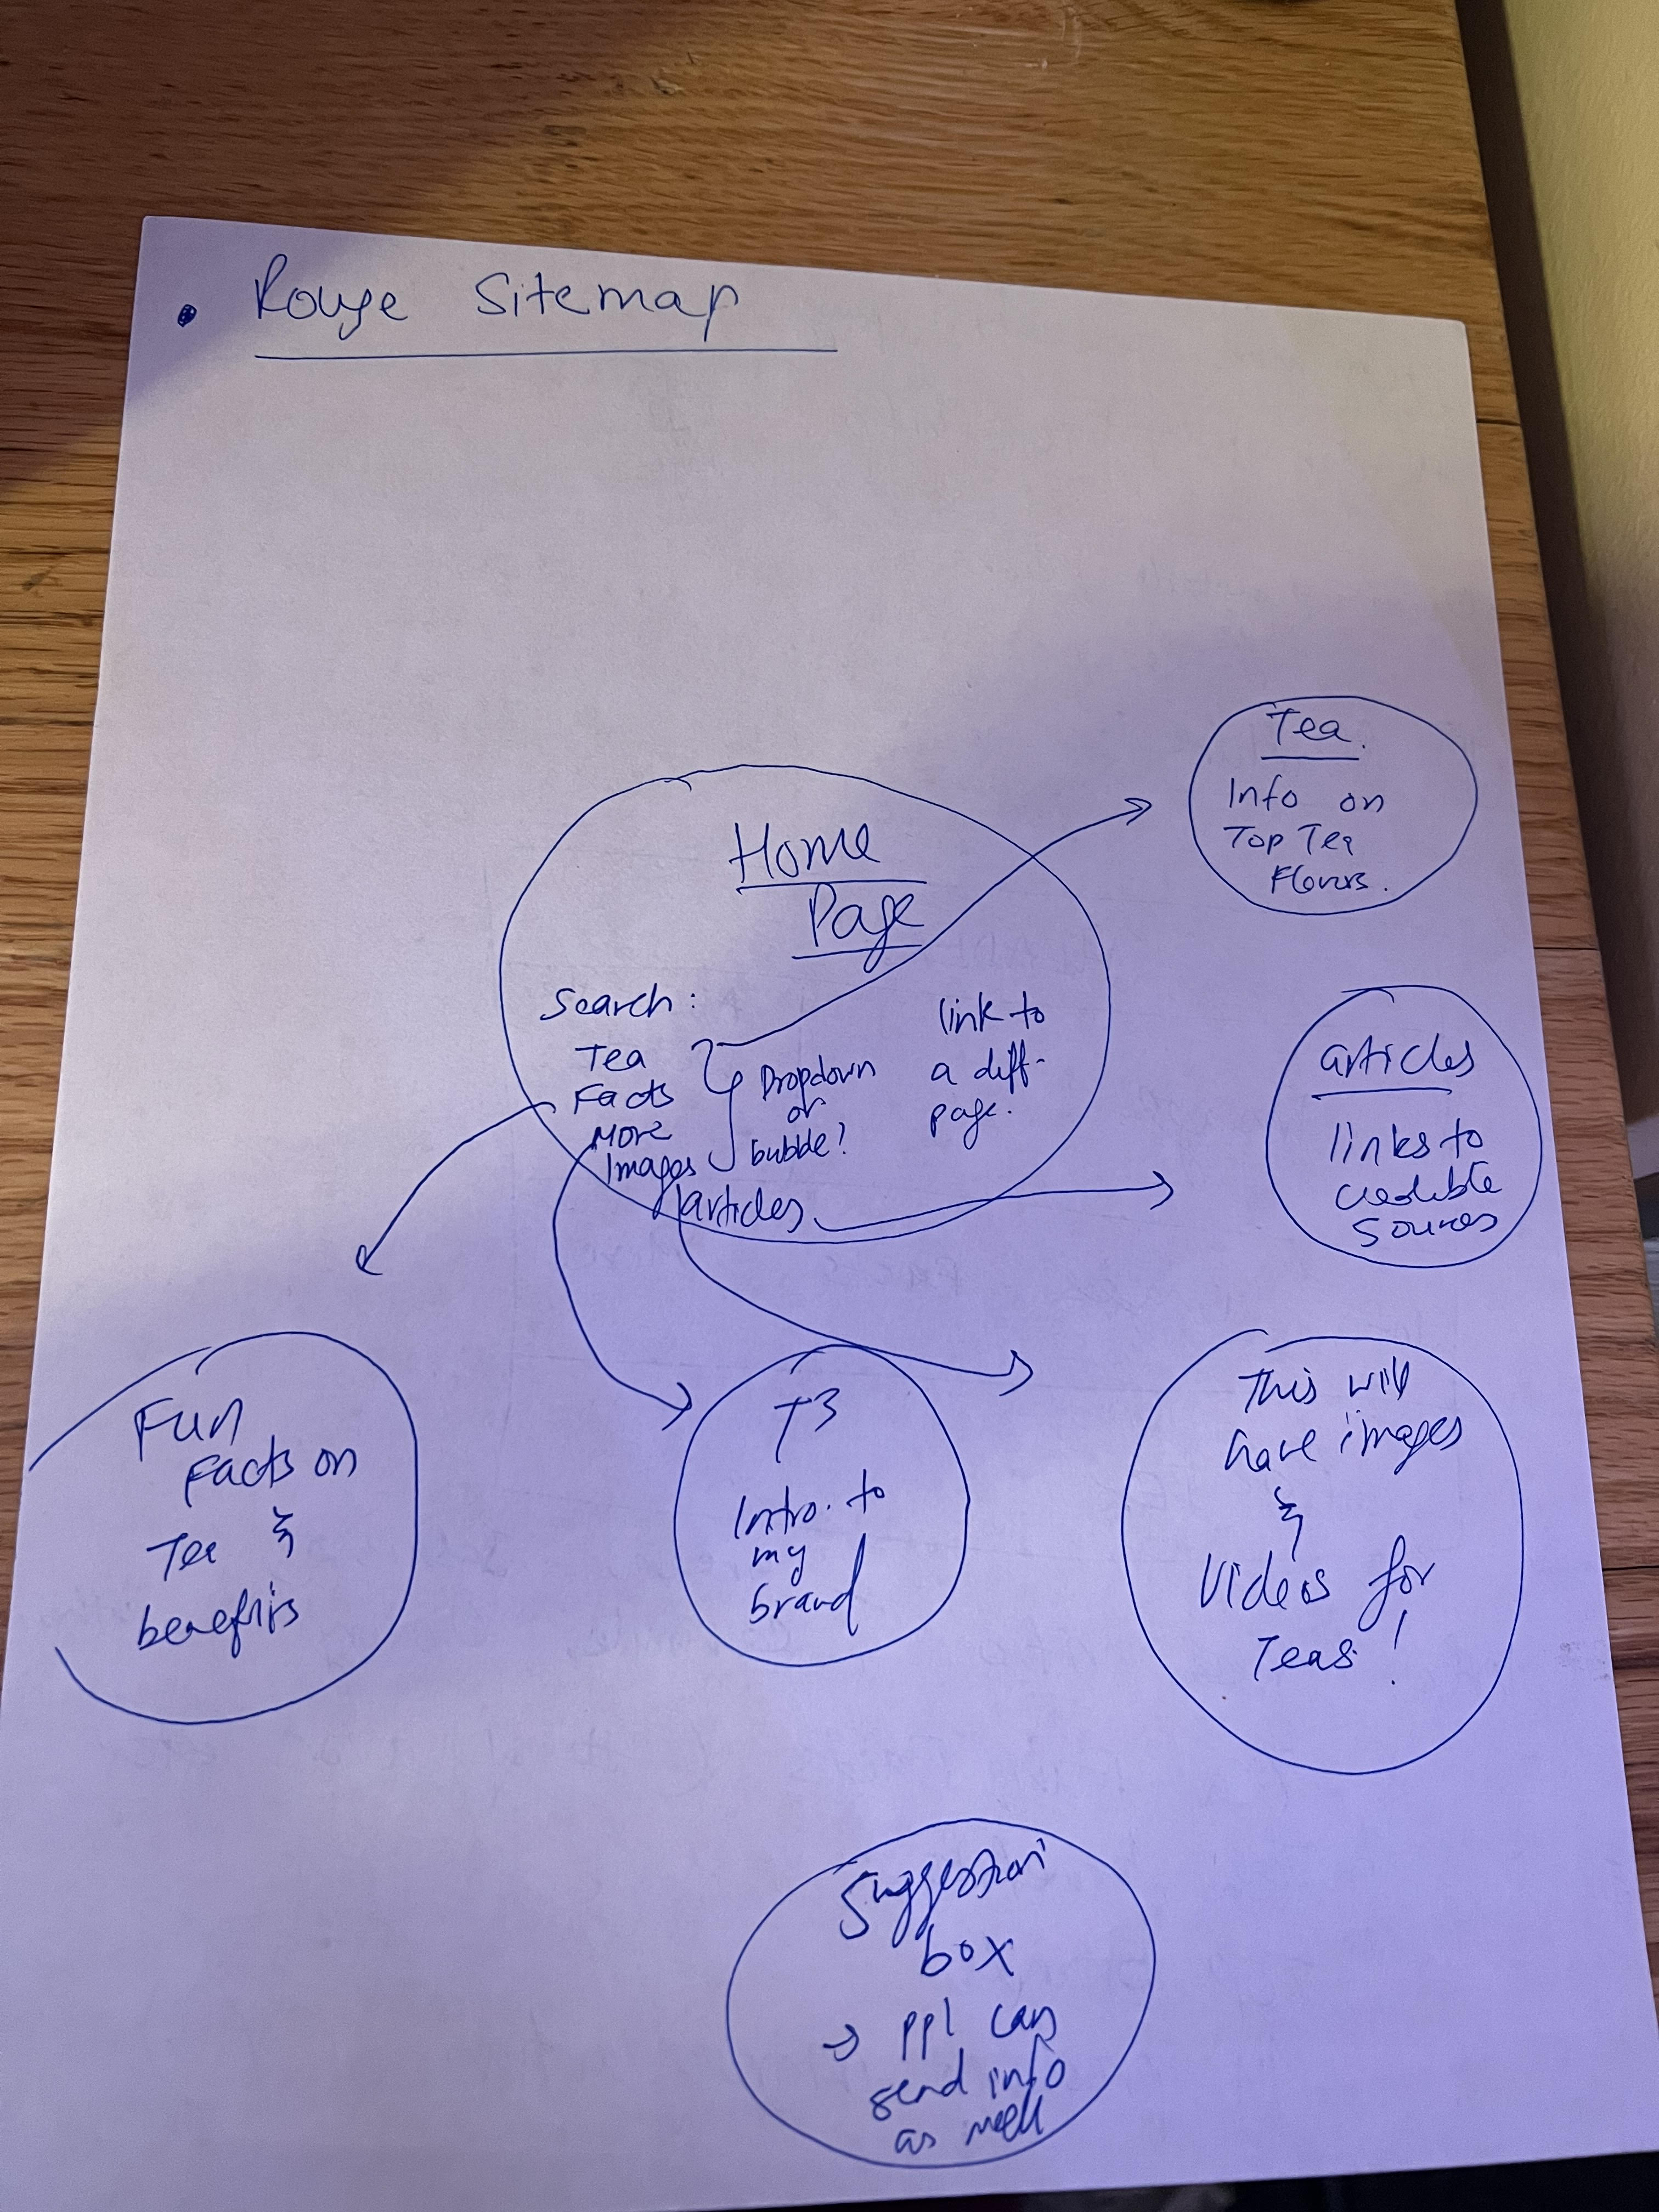 Rouge Sitemap
Tea.
Info on
Top Tea
Flavors.
Home
Page
Search:
Tea
Facts
More
Images
articles
Dropdown
or
bubble?
link to
a diff-
page.
articles
links to
credible
sources
Fun
Facts on
Tea &
benefits
T3
Intro. to
my
brand
This will
have images
&
Videos for
Teas!
Suggestion
box
→ ppl can
send info
as well